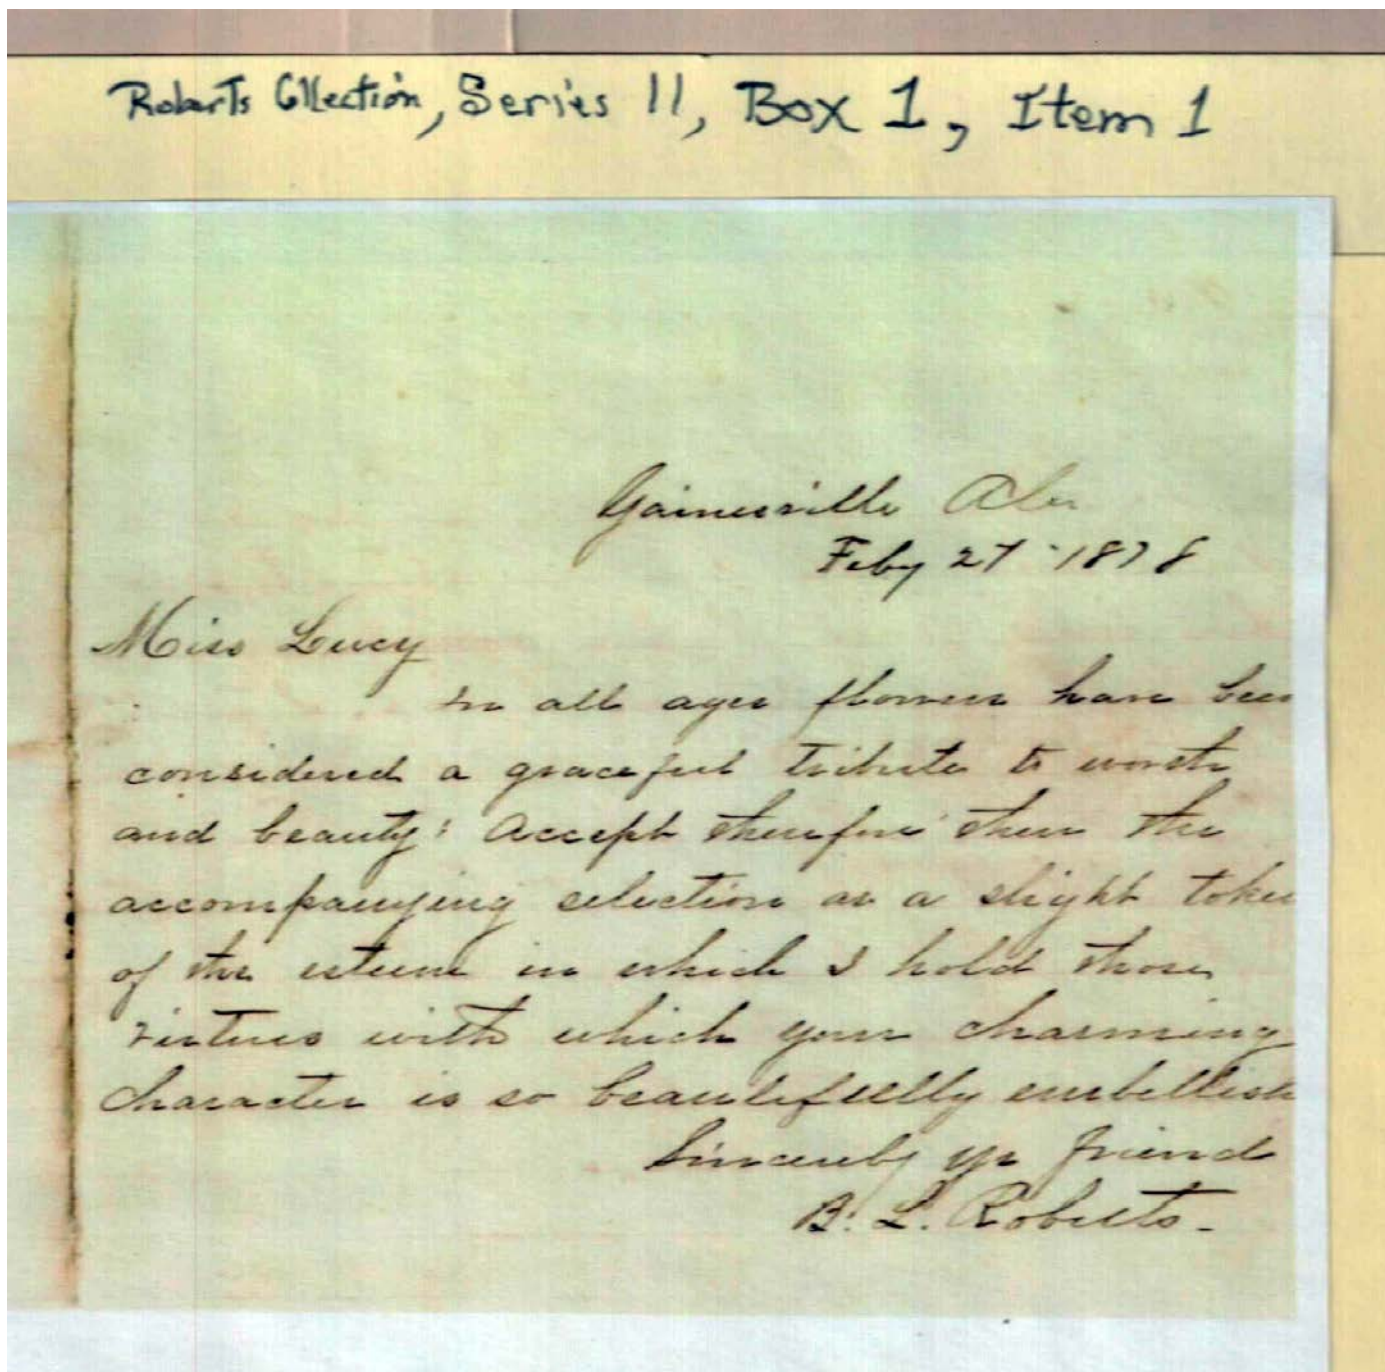 Roberts Collection, Series II, Box 1, Item 1
Gainesville Ala
Feby 27 - 1878
Miss Lucy
In all ages flowers have been
considered a graceful tribute to worth
and beauty: Accept therefore then the
accompanying selection as a slight token
of the esteem in which I hold those
virtues with which your charming
character is so beautifully embellish
Sincerely yr friend
B. L. Roberts.